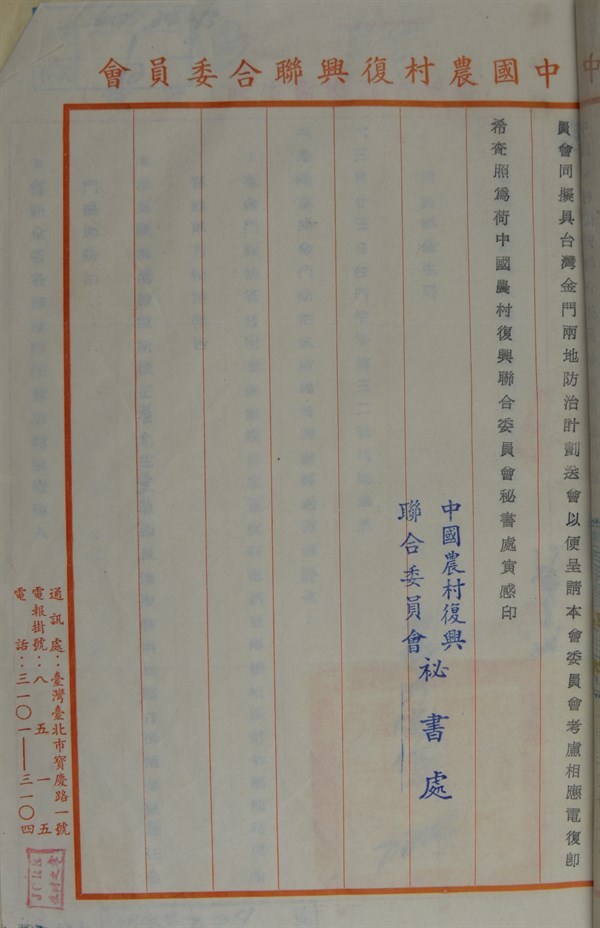 中國農村復興聯合委員會
員會同擬具台灣金門兩地防治計劃送會以便呈請本會委員會考慮相應電復卽
希查照爲荷中國農村復興聯合委員會秘書處寅感印
中國農村復興
聯合委員會
祕書處
通訊處：臺灣臺北市寶慶路一號
電報掛號：八五一五
電話：三一〇一——三一〇四